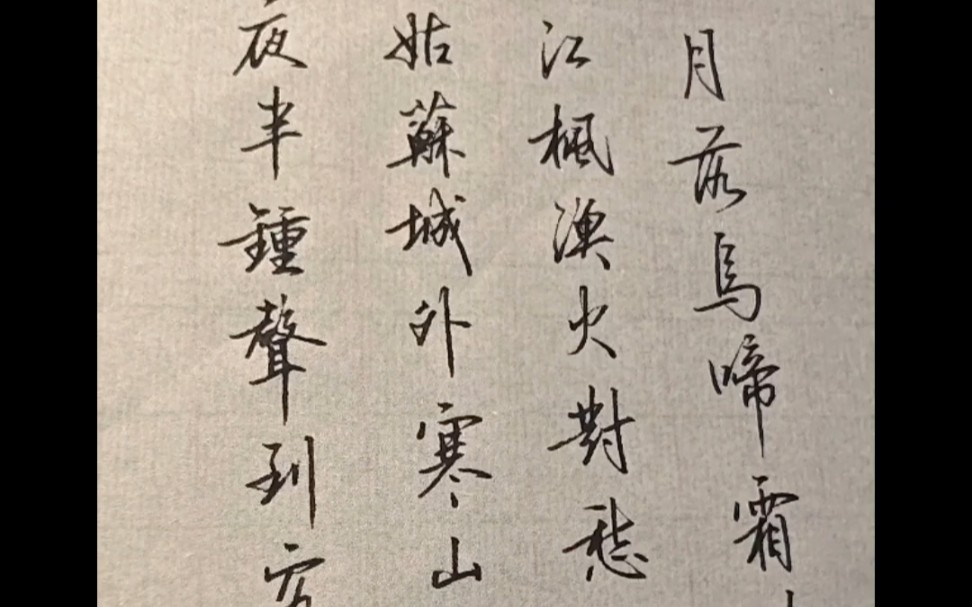 月落烏啼霜
江楓漁火對愁
姑蘇城外寒山
夜半鍾聲到客